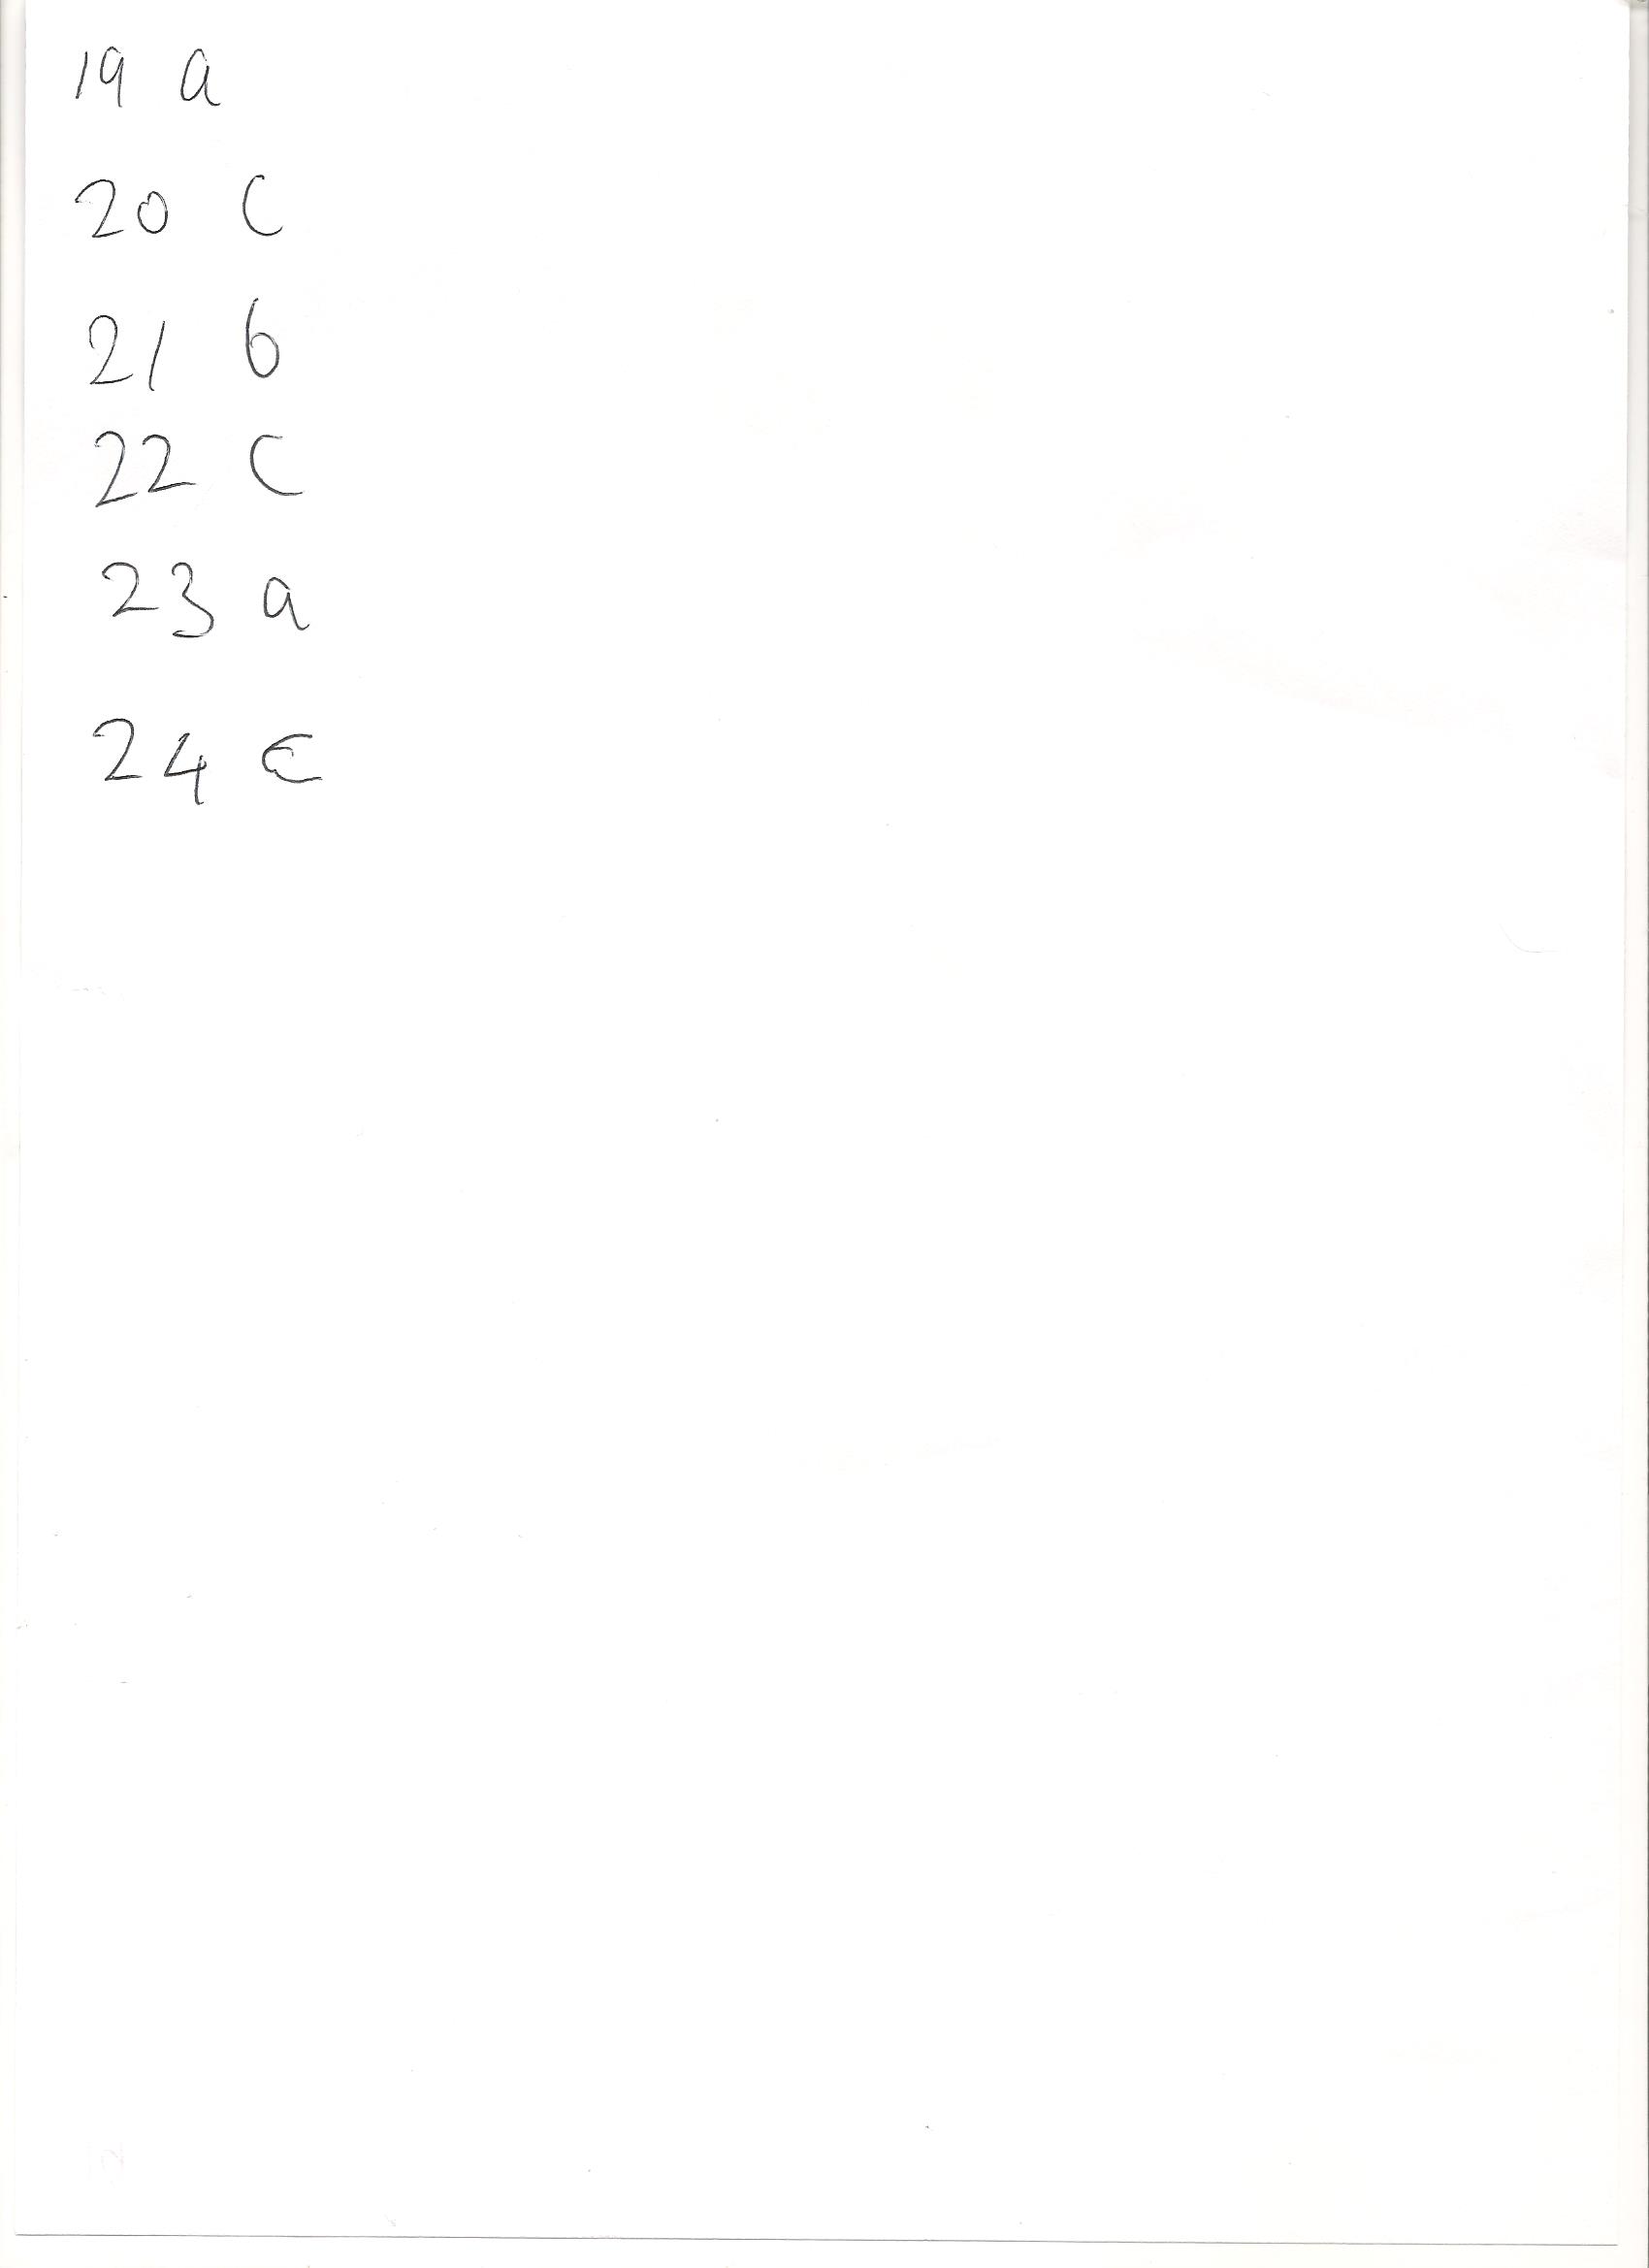 19 a
20 c
21 b
22 c
23 a
24 c